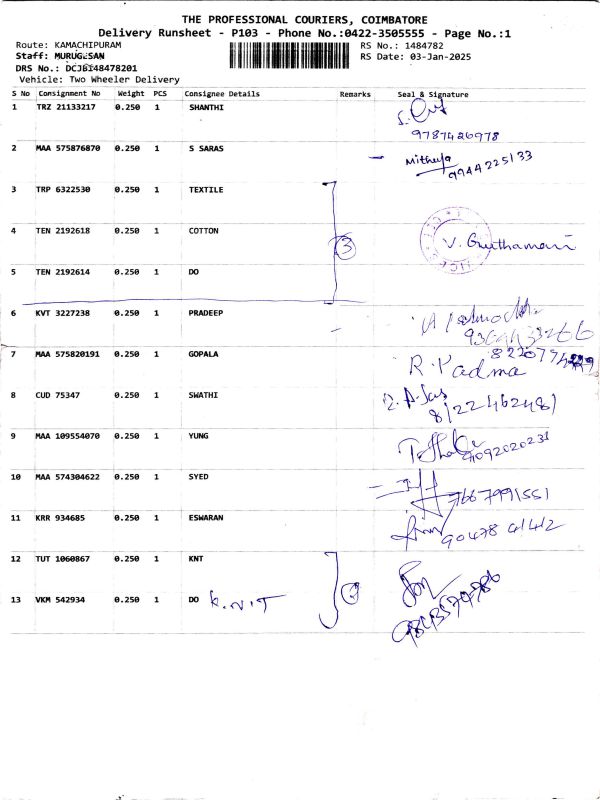 THE PROFESSIONAL COURIERS, COIMBATORE
Delivery Runsheet - P103 - Phone No.:0422-3505555 - Page No.:1
Route: KAMACHIPURAM RS No.: 1484782
Staff: MURUGESAN RS Date: 03-Jan-2025
DRS No.: DCJBI48478201
Vehicle: Two Wheeler Delivery
S No Consignment No Weight PCS Consignee Details Remarks Seal & Signature
1 TRZ 21133217 0.250 1 SHANTHI
9787426978
2 MAA 575876870 0.250 1 S SARAS Mithuya
9944225133
3 TRP 6322530 0.250 1 TEXTILE
4 TEN 2192618 0.250 1 COTTON 3 V. Gruthamani
5 TEN 2192614 0.250 1 DO
6 KVT 3227238 0.250 1 PRADEEP
7 MAA 575820191 0.250 1 GOPALA R. Padma
8 CUD 75347 0.250 1 SWATHI
8122462481
9 MAA 109554070 0.250 1 YUNG
9092020231
10 MAA 574304622 0.250 1 SYED
7667991551
11 KRR 934685 0.250 1 ESWARAN
9047841412
12 TUT 1060867 0.250 1 KNT
13 VKM 542934 0.250 1 DO K.N.T 2